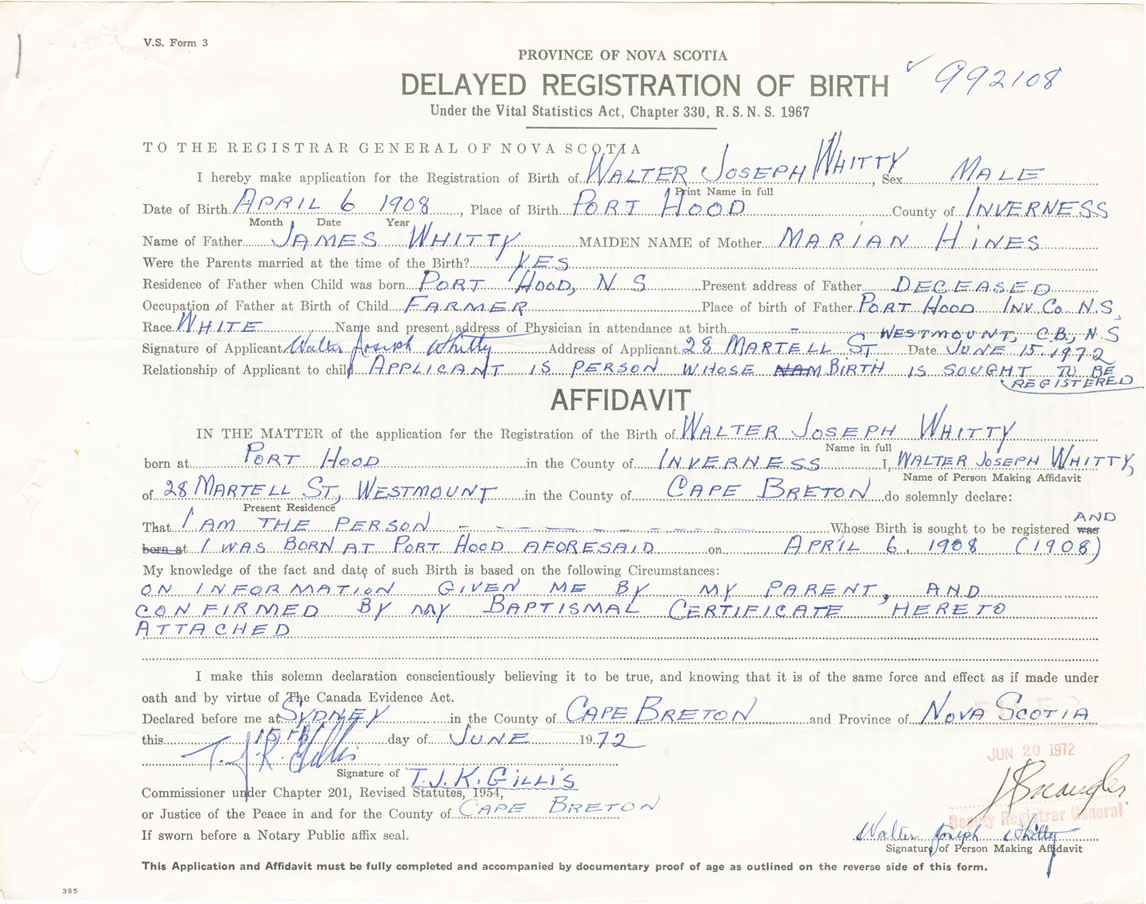 V.S. Form 3
PROVINCE OF NOVA SCOTIA
DELAYED REGISTRATION OF BIRTH
✓ 992108
Under the Vital Statistics Act, Chapter 330, R. S. N. S. 1967
TO THE REGISTRAR GENERAL OF NOVA SCOTIA
I hereby make application for the Registration of Birth of WALTER JOSEPH WHITTY, Sex MALE
Print Name in full
Date of Birth APRIL 6 1908, Place of Birth PORT HOOD County of INVERNESS
Month Date Year
Name of Father JAMES WHITTY MAIDEN NAME of Mother MARIAN HINES
Were the Parents married at the time of the Birth? YES
Residence of Father when Child was born PORT HOOD, N S Present address of Father DECEASED
Occupation of Father at Birth of Child FARMER Place of birth of Father PORT HOOD INV. Co. N.S.
Race WHITE Name and present address of Physician in attendance at birth -
WESTMOUNT, C.B., N.S
Signature of Applicant Walter Joseph Whitty Address of Applicant 28 MARTELL ST Date JUNE 15, 1972
Relationship of Applicant to child APPLICANT IS PERSON WHOSE NAM BIRTH IS SOUGHT TO BE
REGISTERED
AFFIDAVIT
IN THE MATTER of the application for the Registration of the Birth of WALTER JOSEPH WHITTY
Name in full
born at PORT HOOD in the County of INVERNESS I, WALTER JOSEPH WHITTY,
Name of Person Making Affidavit
of 28 MARTELL ST, WESTMOUNT in the County of CAPE BRETON do solemnly declare:
Present Residence
That I AM THE PERSON Whose Birth is sought to be registered was AND
born at I WAS BORN AT PORT HOOD AFORESAID on APRIL 6, 1908 (1908)
My knowledge of the fact and date of such Birth is based on the following Circumstances:
ON INFORMATION GIVEN ME BY MY PARENT, AND
CONFIRMED BY MY BAPTISMAL CERTIFICATE HERETO
ATTACHED
I make this solemn declaration conscientiously believing it to be true, and knowing that it is of the same force and effect as if made under
oath and by virtue of The Canada Evidence Act.
Declared before me at SYDNEY in the County of CAPE BRETON and Province of NOVA SCOTIA
this 15TH day of JUNE 1972
JUN 20 1972
T. J. K. Gillis
Signature of T.J.K. GILLIS
Commissioner under Chapter 201, Revised Statutes, 1954,
or Justice of the Peace in and for the County of CAPE BRETON
Deputy Registrar General
If sworn before a Notary Public affix seal.
Walter Joseph Whitty
Signature of Person Making Affidavit
This Application and Affidavit must be fully completed and accompanied by documentary proof of age as outlined on the reverse side of this form.
385